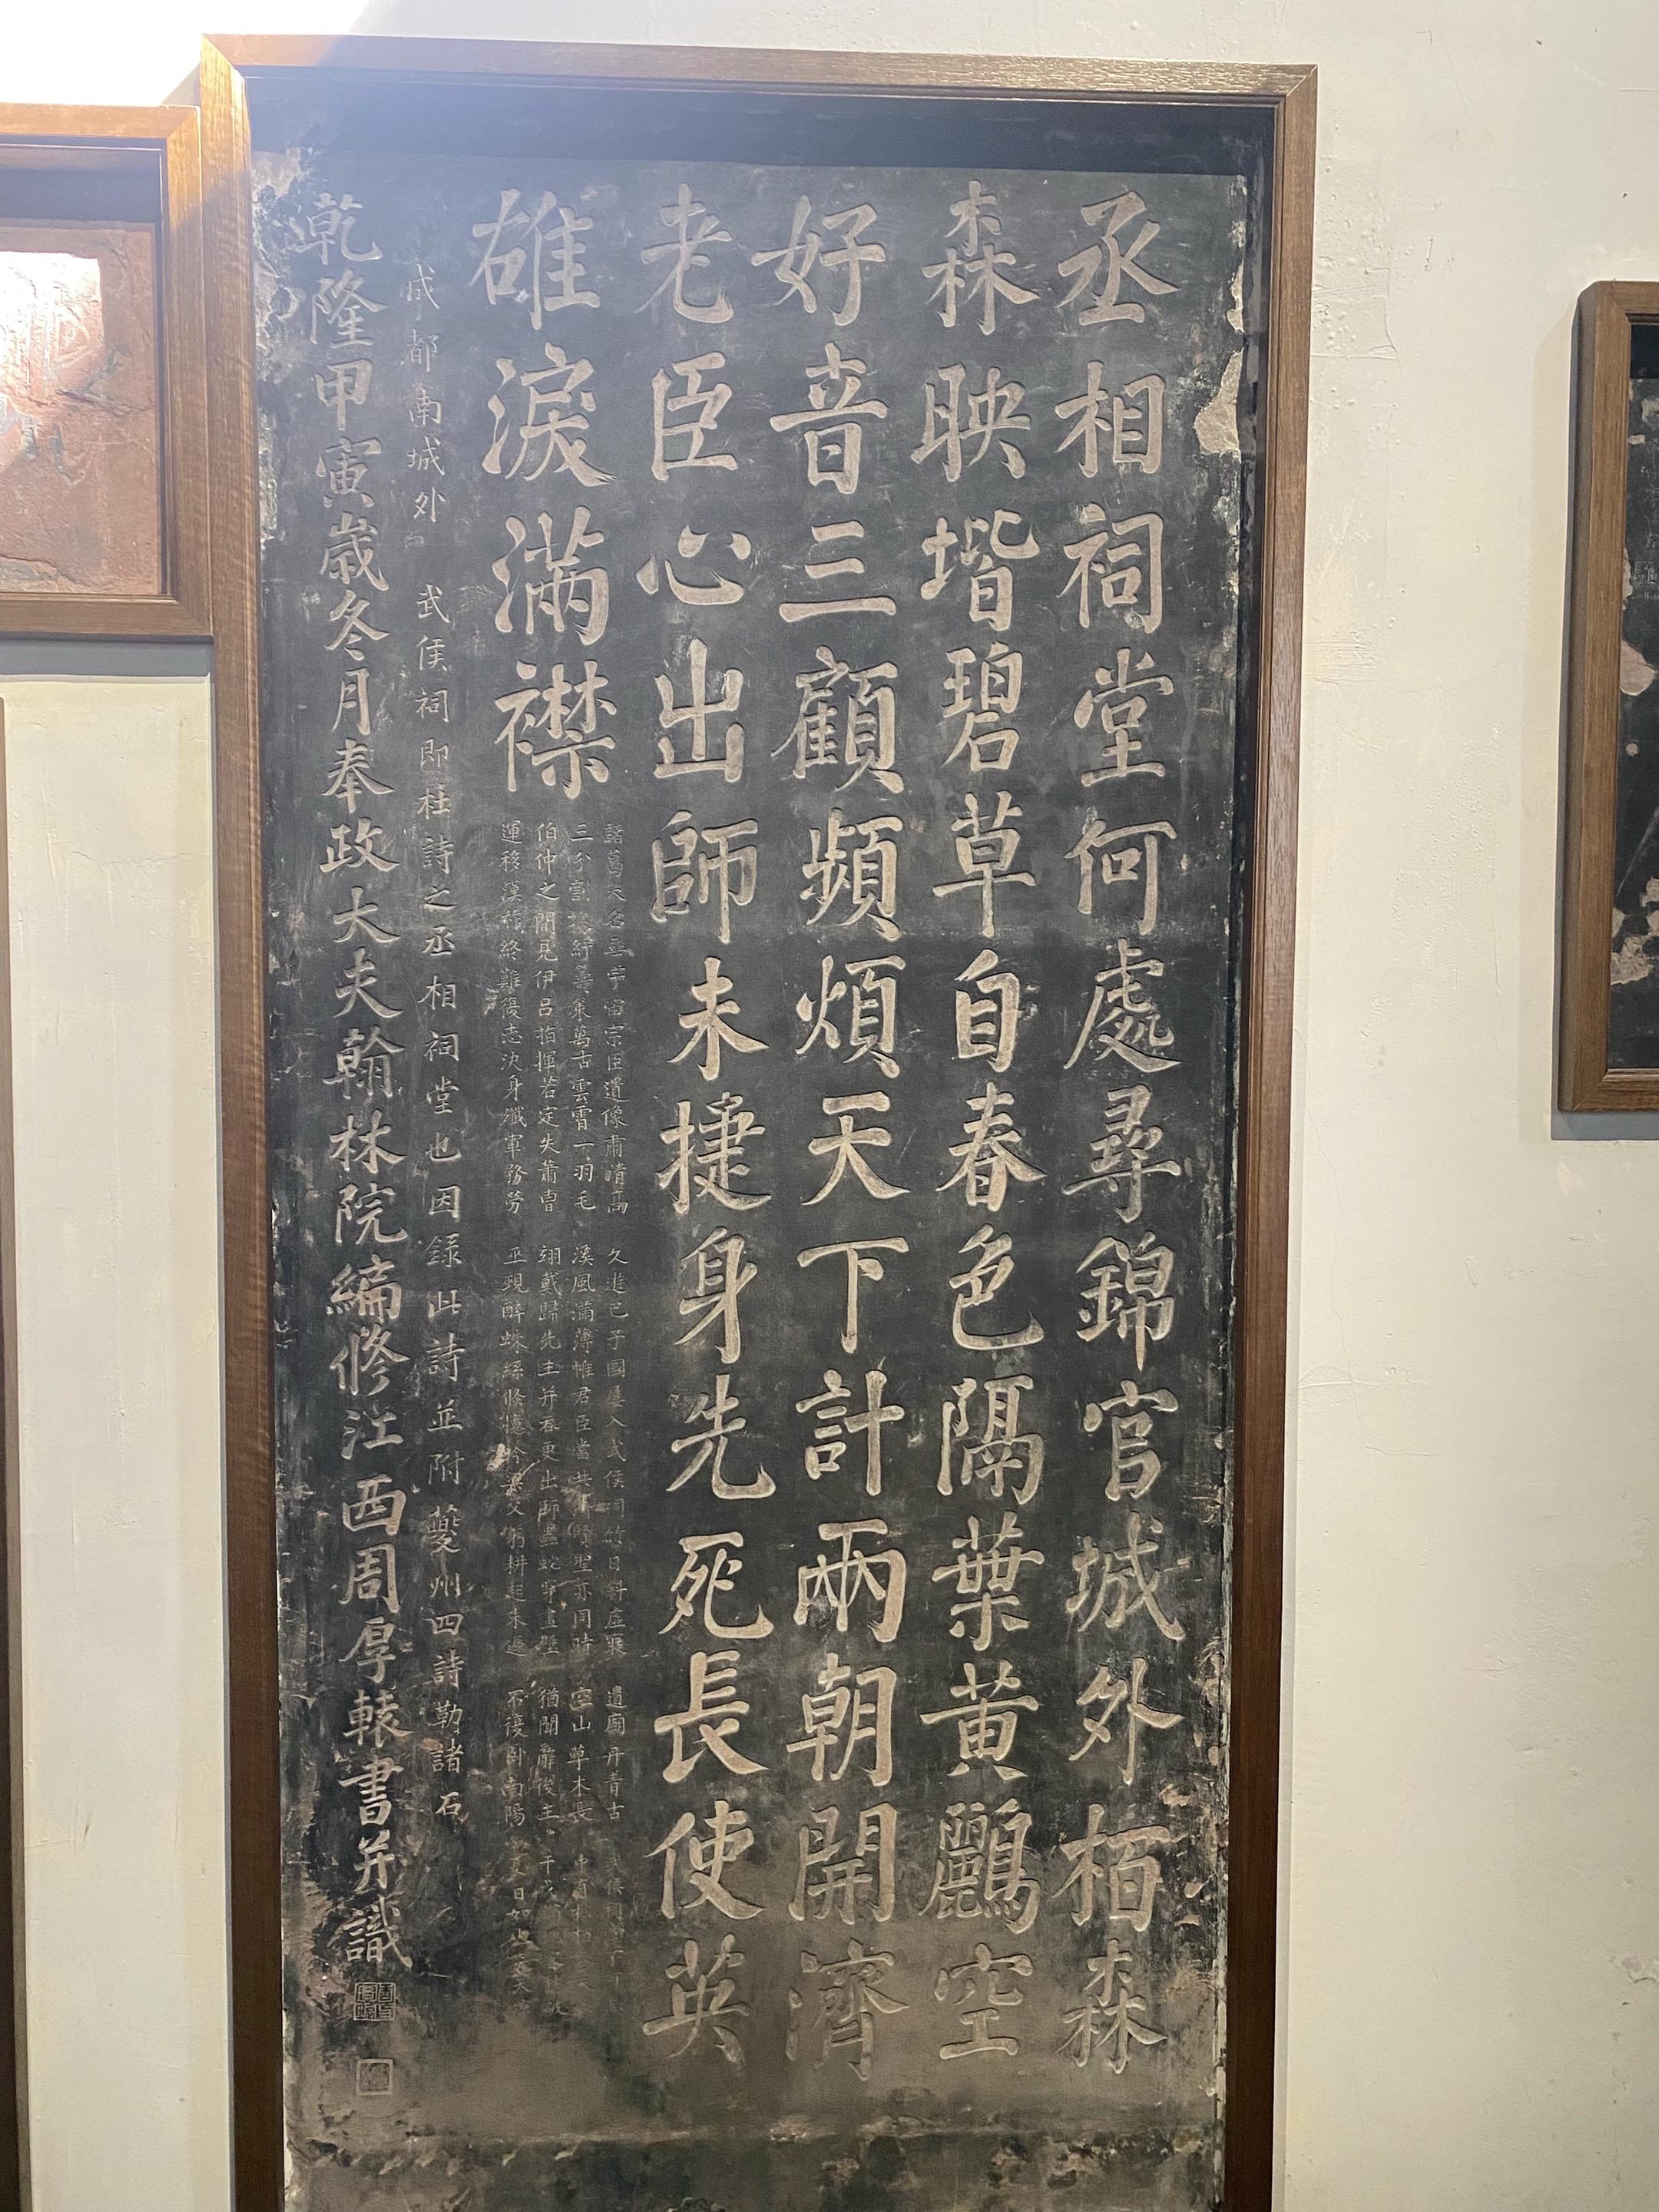 丞相祠堂何處尋錦官城外栢森
森映堦碧草自春色隔葉黃鸝空
好音三顧頻煩天下計兩朝開濟
老臣心出師未捷身先死長使英
雄淚滿襟
諸葛大名垂宇宙宗臣遺像肅清高
三分割據紆籌策萬古雲霄一羽毛
伯仲之間見伊呂指揮若定失蕭曹
運移漢祚終難復志決身殲軍務勞
久遊巴子國屢入武侯祠竹日斜虛寢
溪風滿薄帷君臣當共濟賢聖亦同時
翊戴歸先主并吞更出師蟲蛇穿畫壁
巫覡醉蛛絲倏憶吟梁父躬耕起未遲
遺廟丹青古
空山草木長
猶聞辭後主
不復臥南陽
成都南城外 武侯祠即杜詩之丞相祠堂也因錄此詩並附夔州四詩勒諸石
乾隆甲寅歲冬月奉政大夫翰林院編修江西周厚轅書并識